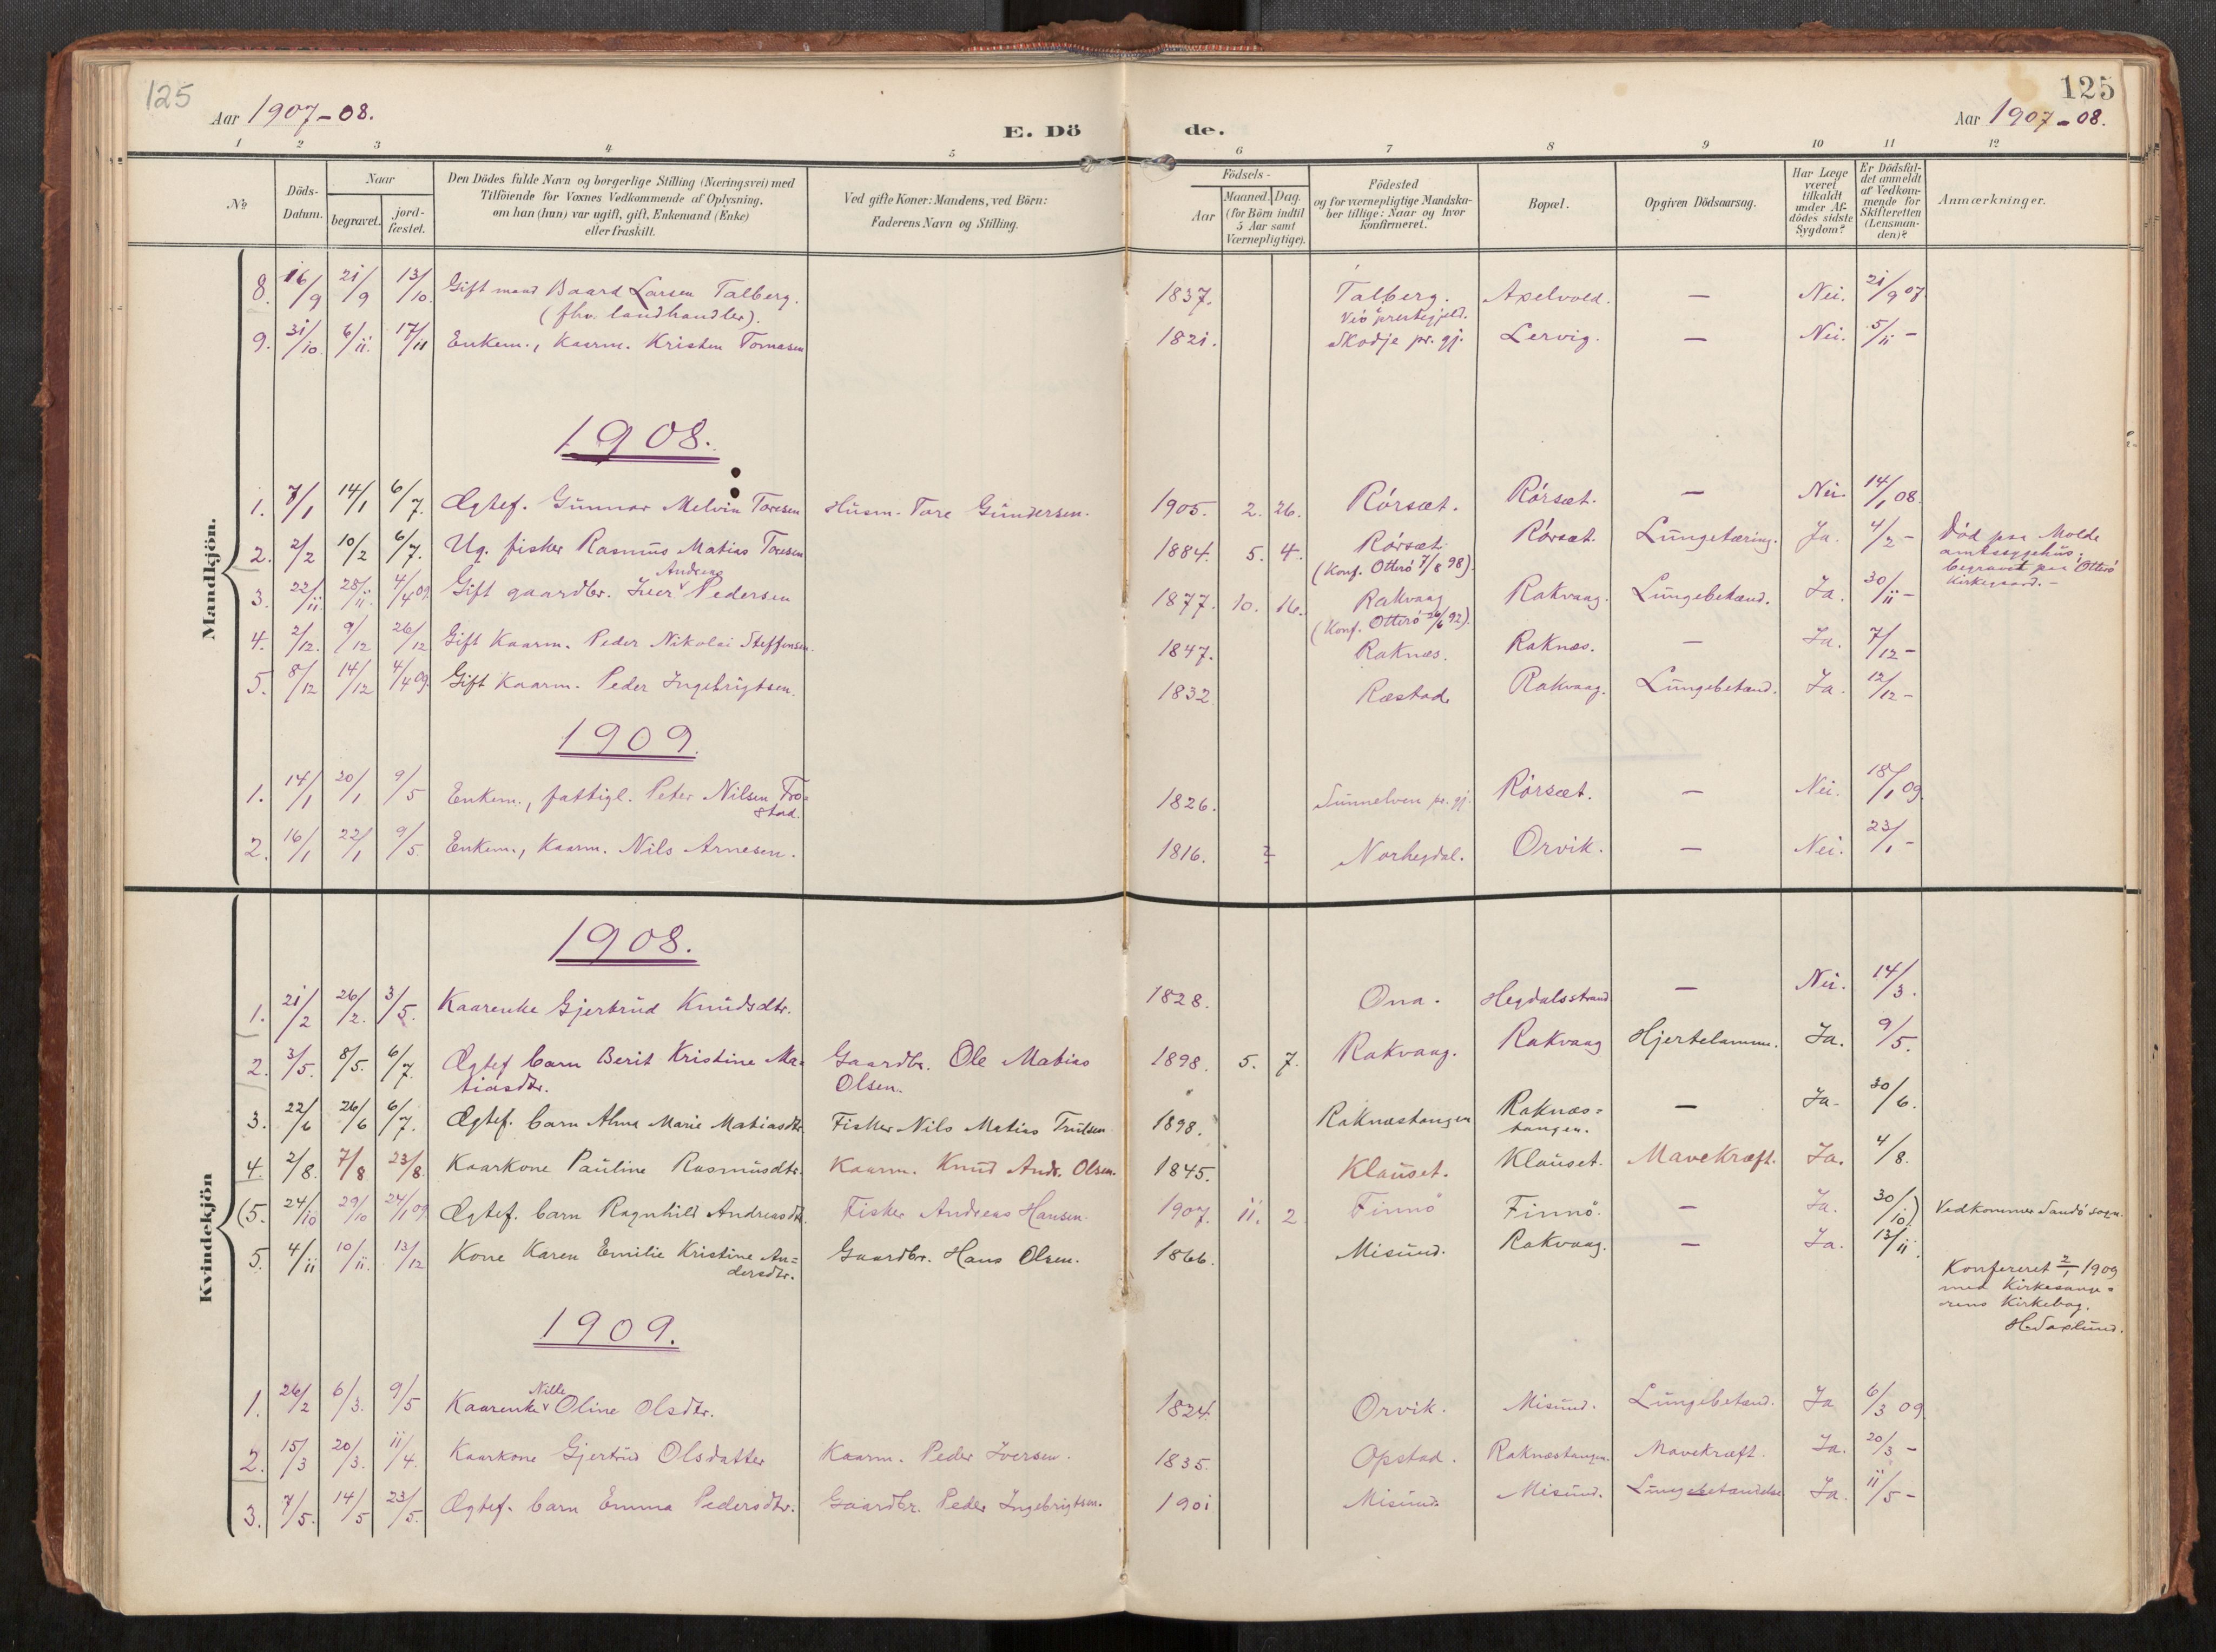 125
125
Aar 1907-08.
E. Dö de.
Aar 1907-08.
1 2 3 4 5 6 7 8 9 10 11 12
№
Döds-
Datum.
Naar
begravet.
jord-
fæstet.
Den Dödes fulde Navn og borgerlige Stilling (Næringsvei) med
Tilföiende for Voxnes Vedkommende af Oplysning,
om han (hun) var ugift, gift, Enkemand (Enke)
eller fraskilt.
Ved gifte Koner: Mandens, ved Börn:
Faderens Navn og Stilling.
Födsels-
Aar
Maaned. Dag.
(for Börn indtil
5 Aar samt
Værnepligtige).
Födested
og for værnepligtige Mandska-
ber tillige: Naar og hvor
konfirmeret.
Bopæl.
Opgiven Dödsaarsag.
Har Læge
været
tilkaldt
under Af-
dödes sidste
Sygdom?
Er Dödsfal-
det anmeldt
af Vedkom-
mende for
Skifteretten
(Lensman-
den)?
Anmærkninger.
Mandkjön.
8. 16/9 21/9 13/10. Gift mand Baard Larsen Talberg. 1837. Talberg. Axelvold. — Nei. 21/9 07
(fhv. landhandler). Veö prestegjeld.
9. 31/10. 6/11. 17/11 Enkem., Kaarm. Kristen Tomasen 1821. Skodje pr. gj. Lervig. — Nei. 5/11 -
1908.
1. 7/1 14/1 6/7. Ægtef. Gunnar Melvin Toresen Husm. Tore Gundersen. 1905. 2. 26. Rörsæt. Rörsæt. — Nei. 14/1 08.
2. 2/2 10/2 6/7. Ug. fisker Rasmus Matias Toresen 1884. 5. 4. Rörsæt. Rörsæt. Lungetæring. Ja. 4/2 - Död paa Molde
(Konf. Otterö 7/8 98). amtssygehus;
begravet paa Otterö
Kirkegaard. -
Andreas
3. 22/11. 28/11. 4/4 09. Gift gaardbr. Iver Pedersen 1877. 10. 16. Rakvaag Rakvaag. Lungebetænd. Ja. 30/11 -
(Konf. Otterö 26/6 92).
4. 2/12. 9/12 26/12 Gift Kaarm. Peder Nikolai Steffensen. 1847. Raknæs. Raknæs. — Ja. 7/12 -
5. 8/12 14/12 4/4 09. Gift Kaarm. Peder Ingebrigtsen. 1832 Ræstad. Rakvaag. Lungebetænd. Ja. 12/12 -
1909.
1. 14/1 20/1 9/5 Enkem., fattigl. Peter Nilsen Fro= 1826. Sunnelven pr. gj. Rörsæt. — Nei. 18/1 09.
stad.
2. 16/1 22/1 9/5. Enkem., Kaarm. Nils Arnesen. 1816. Norhegdal. Orvik. — Nei. 23/1 -
Kvindekjön
1908.
1. 21/2 26/2. 3/5. Kaarenke Gjertrud Knudsdtr. 1828. Ona. Hegdalsstrand — Nei. 14/3.
2. 3/5. 8/5. 6/7. Ægtef barn Berit Kristine Ma= Gaardbr. Ole Matias 1898. 5. 7. Rakvaag. Rakvaag Hjertelamme. Ja. 9/5.
tiasdtr. Olsen.
3. 22/6 26/6 6/7. Ægtef. barn Alma Marie Matiasdtr. Fisker Nils Matias Trulsen 1898. Raknæstangen Raknæs= — Ja. 30/6.
tangen.
4. 2/8. 7/8 23/8. Kaarkone Pauline Rasmusdtr. Kaarm. Knud Andr. Olsen. 1845. Klauset. Klauset. Mavekræft. Ja. 4/8.
(5. 24/10 29/10 24/1 09 Ægtef. barn Ragnhild Andreasdtr. Fisker Andreas Hansen. 1907. 11. 2 Finnö Finnö. — Ja. 30/10.) Vedkommer Sandö sogn.
5. 4/11 10/11. 13/12 Kone Karen Emilie Kristine An= Gaardbr. Hans Olsen. 1866. Misund. Rakvaag. — Ja. 13/11.
dersdtr.
Konfereret 2/1 1909
med Kirkesange=
rens Kirkebog.
1909.
Nille
1. 26/2 6/3. 9/5 Kaarenke Oline Olsdtr. 1824. Orvik. Misund. Lungebetænd. Ja 6/3 09
2. 15/3 20/3. 11/4. Kaarkone Gjertrud Olsdatter Kaarm. Peder Iversen. 1835. Opstad. Raknæstangen. Mavekræft. Ja. 20/3 -
3. 7/5. 14/5 23/5. Ægtef. barn Emma Pedersdtr. Gaardbr. Peder Ingebrigtsen. 1901 Misund. Misund. Lungebetændelse Ja. 11/5 -